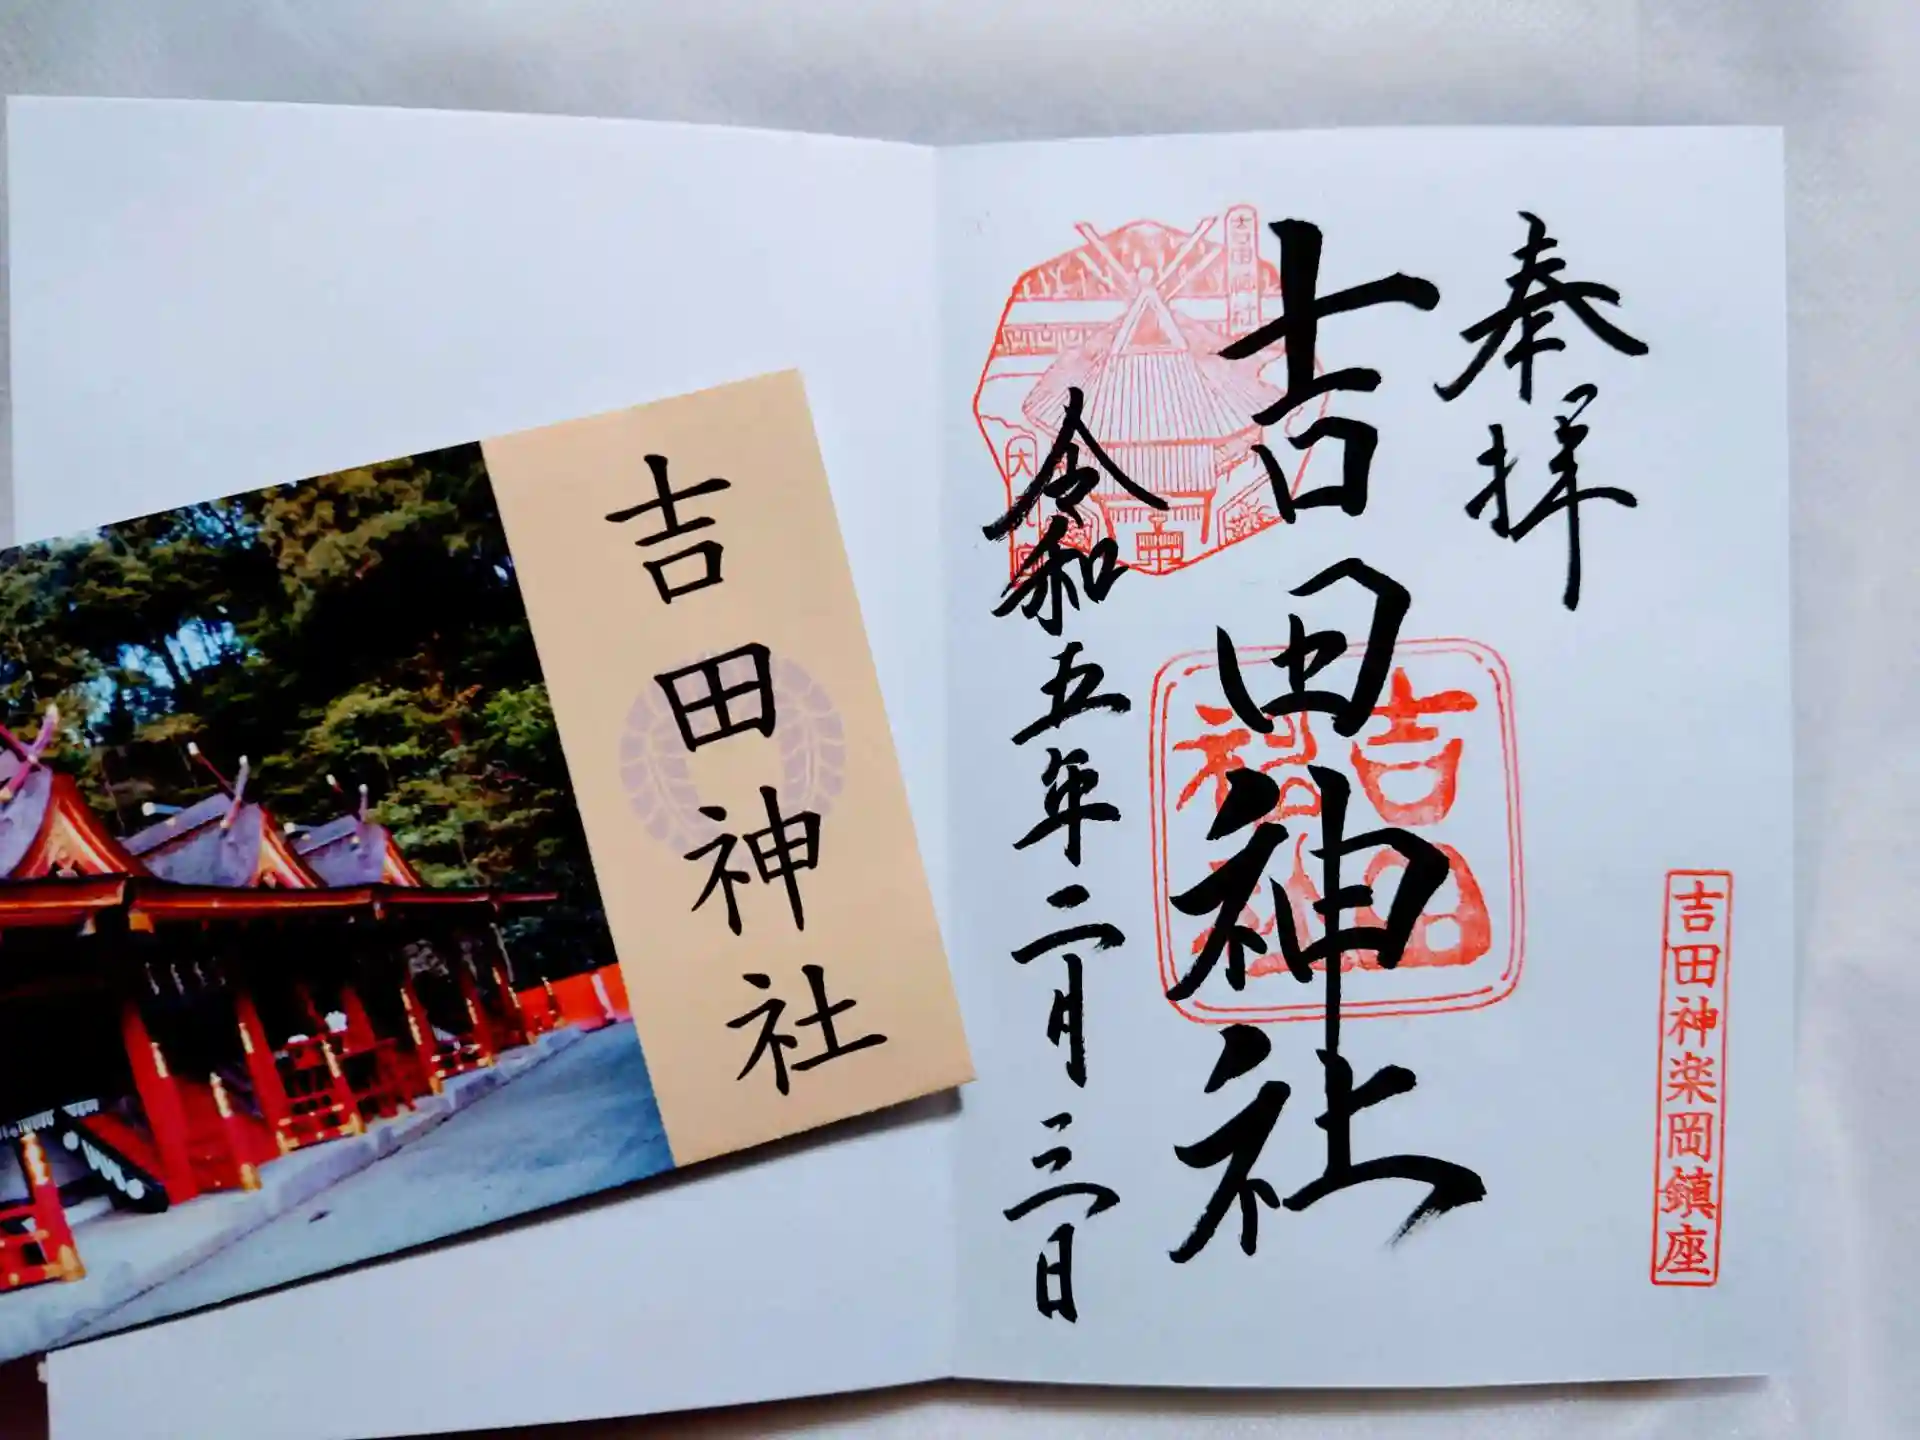 奉拝
吉田神社
令和五年二月三日
吉田神楽岡鎮座
吉田神社
吉田神社